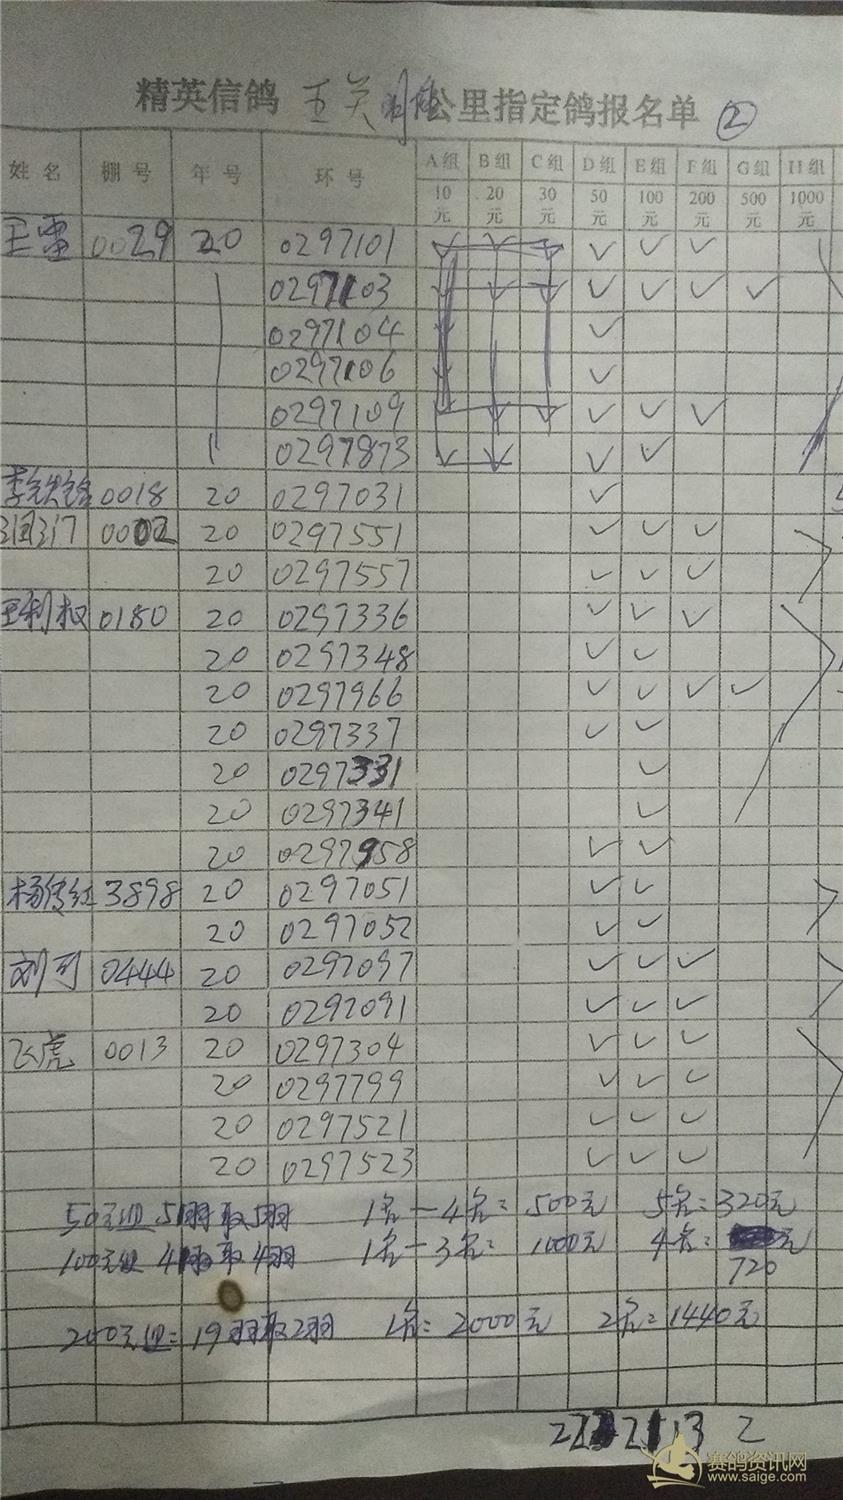 精英信鸽 五关 公里指定鸽报名单 ②
姓名 棚号 年号 环号 A组 B组 C组 D组 E组 F组 G组 H组
10元 20元 30元 50元 100元 200元 500元 1000元
王雷 0029 20 0297101 ✓ ✓ ✓ ✓ ✓ ✓
0297103 ✓ ✓ ✓ ✓ ✓ ✓ ✓
0297104 ✓ ✓
0297106 ✓ ✓
0297109 ✓ ✓ ✓ ✓ ✓ ✓
0297873 ✓ ✓ ✓ ✓
李铁铭 0018 20 0297031 ✓
0002 20 0297551 ✓ ✓ ✓
20 0297557 ✓ ✓ ✓
王利权 0180 20 0297336 ✓ ✓ ✓
20 0297348 ✓ ✓
20 0297966 ✓ ✓ ✓ ✓
20 0297337 ✓ ✓
20 0297331 ✓
20 0297341 ✓
20 0297958 ✓ ✓
杨传红 3898 20 0297051 ✓ ✓
20 0297052 ✓ ✓
刘可 0444 20 0297097 ✓ ✓ ✓
20 0297091 ✓ ✓ ✓
飞虎 0013 20 0297304 ✓ ✓ ✓
20 0297799 ✓ ✓ ✓
20 0297521 ✓ ✓ ✓
20 0297523 ✓ ✓ ✓
50元组 51羽取5羽 1名-4名=500元 5名=320元
100元组 41羽取4羽 1名-3名=1000元 4名= 元
720
200元组=19羽取2羽 1名=2000元 2名=1440元
赛鸽资讯网
www.saige.com